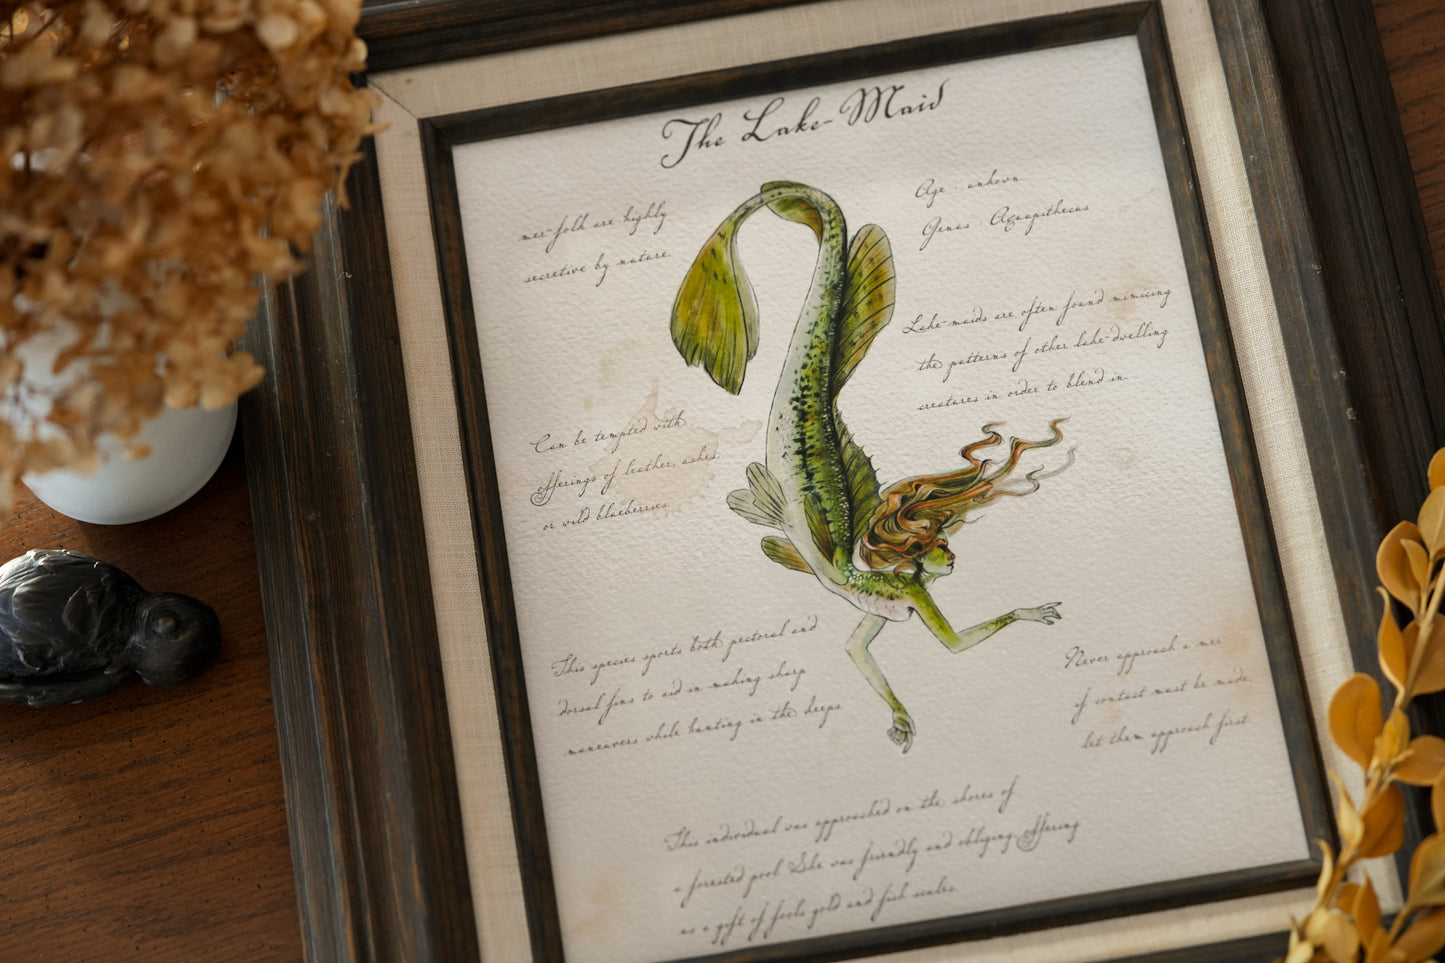 The Lake-Maid
mer-folk are highly
secretive by nature.
Age : unkown
Genus : Aquapithecus
Lake-maids are often found mimicing
the patterns of other lake-dwelling
creatures in order to blend in.
Can be tempted with
offerings of leather, ashes
or wild blueberries.
This species sports both pectoral and
dorsal fins to aid in making sharp
maneuvers while hunting in the deeps.
Never approach a mer
if contact must be made,
let them approach first.
This individual was approached on the shores of
a forested pool. She was friendly and obliging offering
as a gift of fools gold and fish scales.